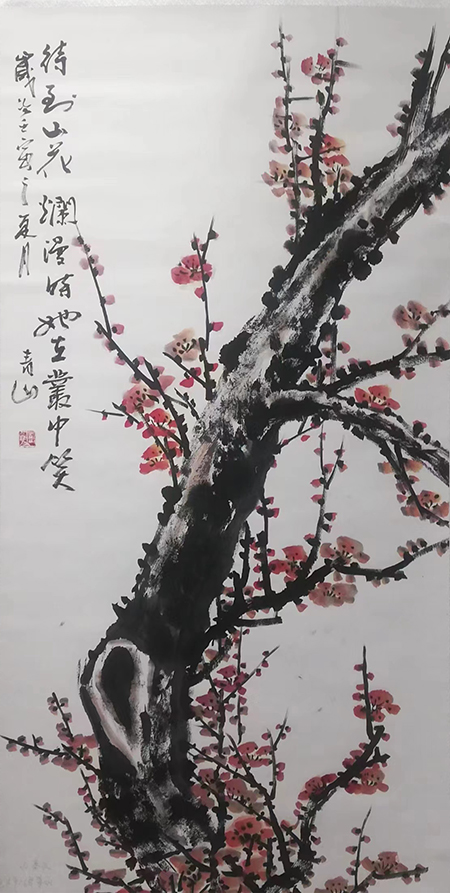 待到山花爛漫時她在叢中笑
歲次壬寅之夏月
青山